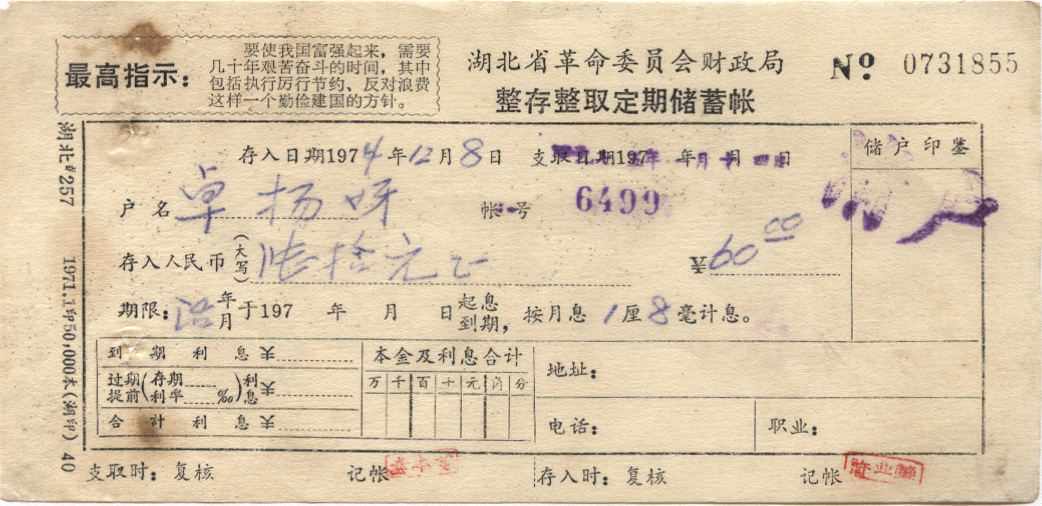 最高指示：
要使我国富强起来，需要
几十年艰苦奋斗的时间，其中
包括执行厉行节约、反对浪费
这样一个勤俭建国的方针。
湖北省革命委员会财政局
整存整取定期储蓄帐
№ 0731855
湖北#257 1971.1印50,000本(湖印) 40
存入日期1974年12月8日 支取日期197 年 月 日
储户印鉴
户名 卓扬呀
帐号 6499
存入人民币(大写) 陆拾元 60.00
期限： 年月于197 年 月 日起息到期，按月息1厘8毫计息。
到期利息
过期提前(存期利率 ‰)利息
合计利息
本金及利息合计
万千百十元角分
地址：
电话： 职业：
支取时：复核 记帐 存入时：复核 记帐